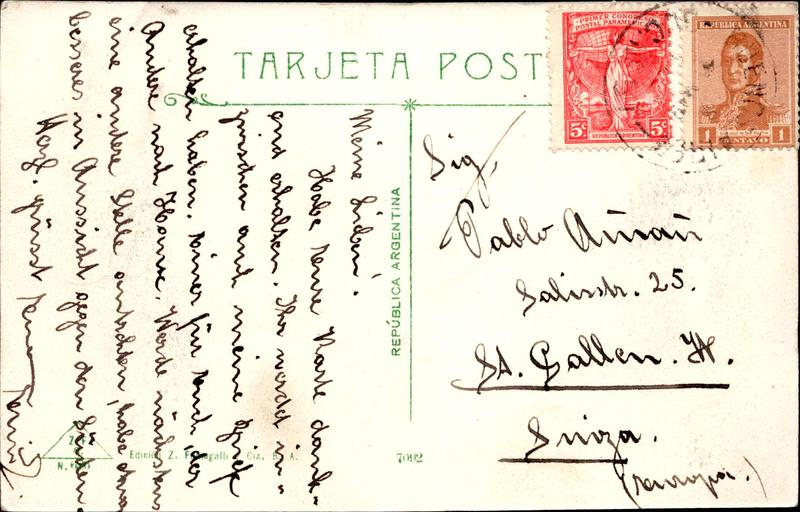 TARJETA POST
PRIMER CONGRESO
POSTAL PANAMERICANO
5c 5c
REPUBLICA ARGENTINA
REPUBLICA ARGENTINA
1 1
CENTAVO
Meine Lieben!
Habe eure Karte dank-
end erhalten. Ihr werdet in-
zwischen auch meine
erhalten haben, einer für euch, der
Andere nach Hause. Werde nächstens
eine andere Stelle antreten, habe etwas
besseres in Aussicht gegen den Süden
Herzl. grüsst
REPÚBLICA ARGENTINA
Sig.
Pablo
Salisstr. 25.
St. Gallen. W.
Suiza.
(Europa.)
Edición Z. Fumagalli Cia. B. A.
7092